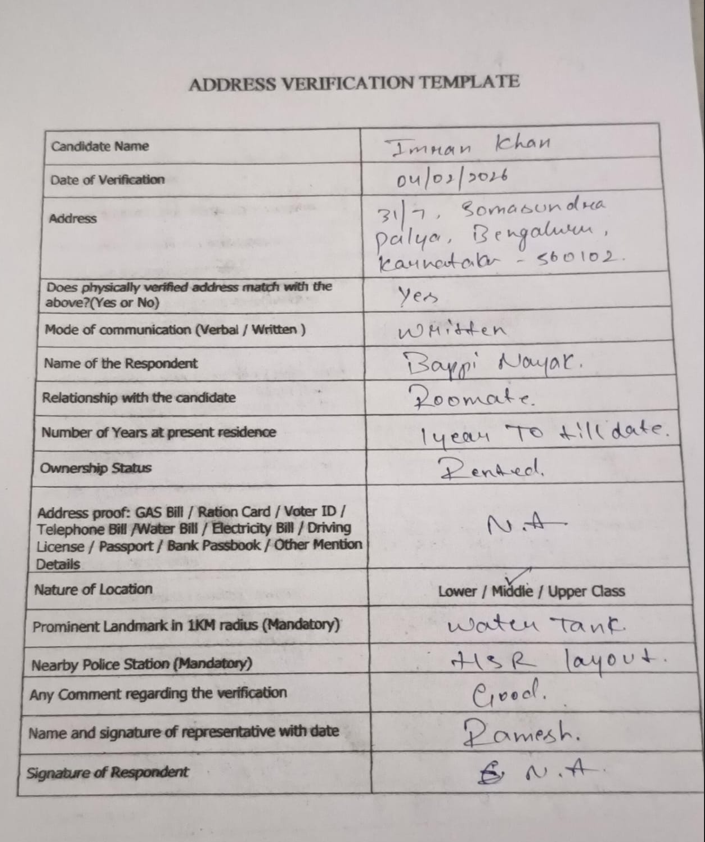 ADDRESS VERIFICATION TEMPLATE
Candidate Name
Imran Khan
Date of Verification
04/02/2026
Address
31/7, Somasundra
palya, Bengaluru,
Karnataka - 560102.
Does physically verified address match with the
above?(Yes or No)
Yes
Mode of communication (Verbal / Written )
Written
Name of the Respondent
Bappi Nayak.
Relationship with the candidate
Roomate.
Number of Years at present residence
1year To till date.
Ownership Status
Rented.
Address proof: GAS Bill / Ration Card / Voter ID /
Telephone Bill /Water Bill / Electricity Bill / Driving
License / Passport / Bank Passbook / Other Mention
Details
N.A
Nature of Location
Lower / Middle / Upper Class
Prominent Landmark in 1KM radius (Mandatory)
Water Tank
Nearby Police Station (Mandatory)
HSR layout.
Any Comment regarding the verification
Good.
Name and signature of representative with date
Ramesh.
Signature of Respondent
N.A.